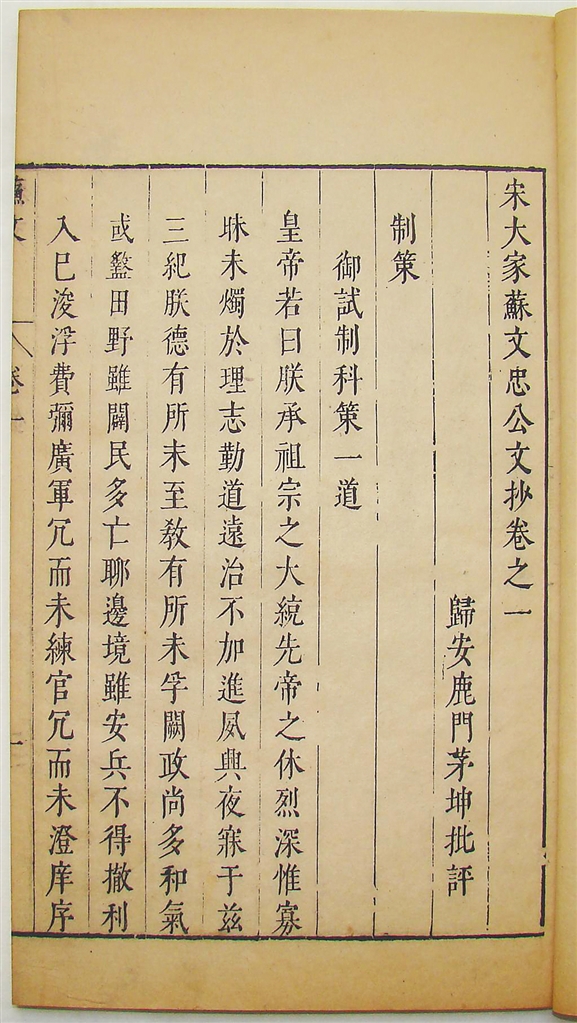 宋大家蘇文忠公文抄卷之一
歸安鹿門茅坤批評
制策
御試制科策一道
皇帝若曰朕承祖宗之大統先帝之休烈深惟寡
昧未燭於理志勤道遠治不加進夙興夜寐于兹
三紀朕德有所未至敎有所未孚闕政尚多和氣
或盭田野雖闢民多亡聊邊境雖安兵不得撤利
入已浚浮費彌廣軍冗而未練官冗而未澄庠序
蘇文 卷一 一